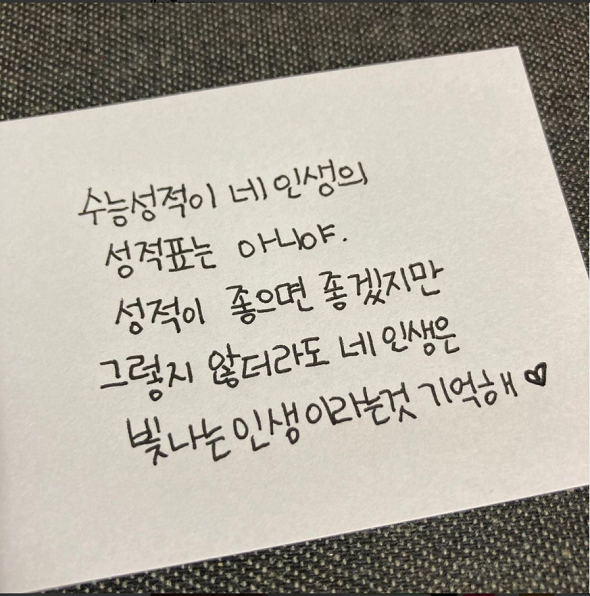 수능성적이 네 인생의
성적표는 아니야.
성적이 좋으면 좋겠지만
그렇지 않더라도 네 인생은
빛나는 인생이라는것 기억해♥